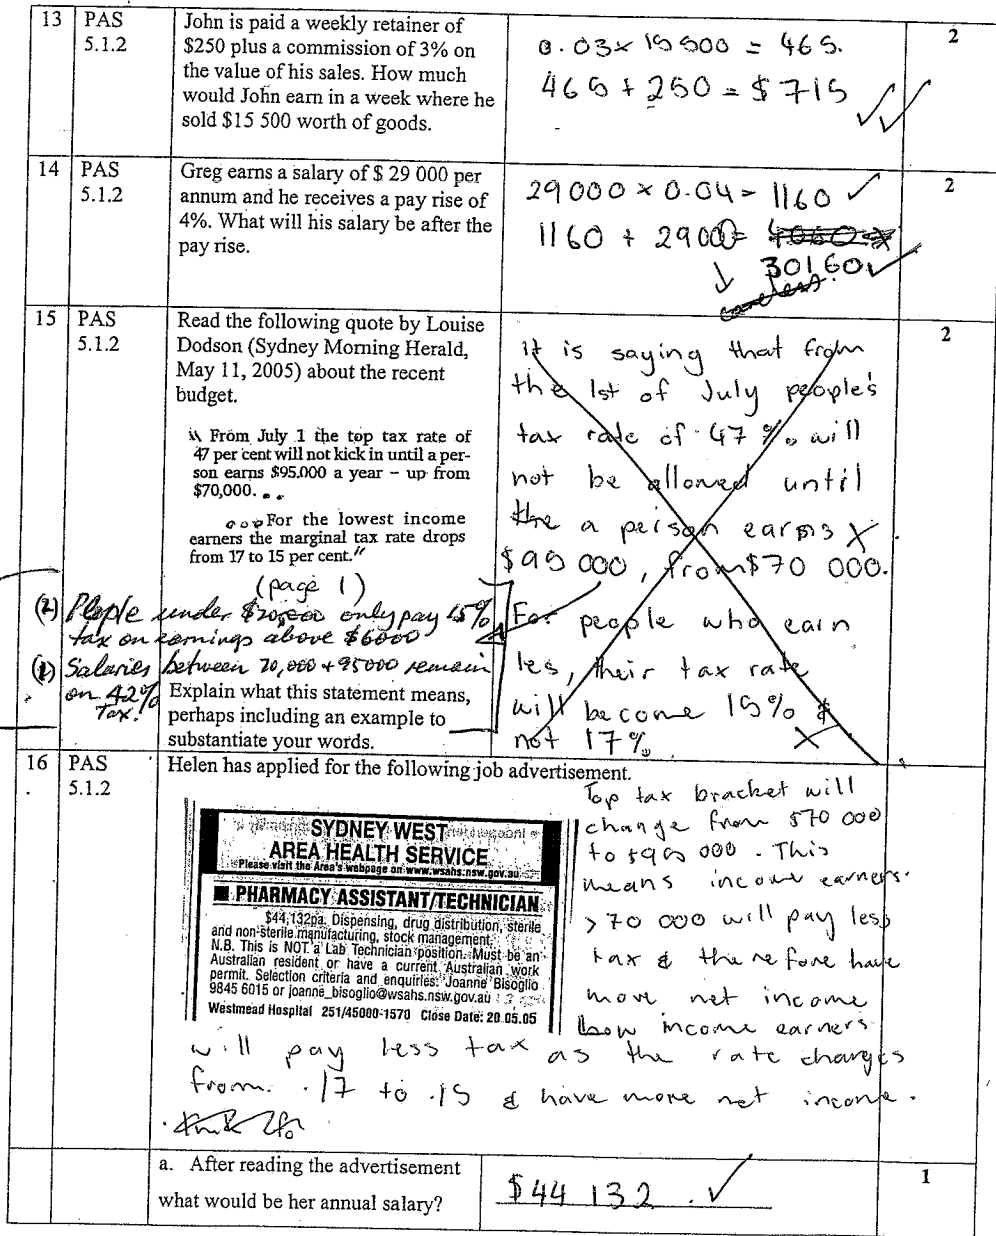 13 PAS 5.1.2
John is paid a weekly retainer of
$250 plus a commission of 3% on
the value of his sales. How much
would John earn in a week where he
sold $15 500 worth of goods.
0.03 x 15 500 = 465.
465 + 250 = $715
2
14 PAS 5.1.2
Greg earns a salary of $ 29 000 per
annum and he receives a pay rise of
4%. What will his salary be after the
pay rise.
29000 x 0.04 = 1160
1160 + 29000=
30160
careless
2
15 PAS 5.1.2
Read the following quote by Louise
Dodson (Sydney Morning Herald,
May 11, 2005) about the recent
budget.
" From July 1 the top tax rate of
47 per cent will not kick in until a per-
son earns $95.000 a year – up from
$70,000. ...
...For the lowest income
earners the marginal tax rate drops
from 17 to 15 per cent."
(page 1)
(2) People under $20,000 only pay 15%
tax on earnings above $6000
(1) Salaries between 70,000 + 95000 remain
on 42%
Tax!
Explain what this statement means,
perhaps including an example to
substantiate your words.
it is saying that from
the 1st of July people's
tax rate of 47% will
not be allowed until
the a person earns
$95 000, from $70 000.
For people who earn
les, their tax rate
will become 15% &
not 17%
2
16 PAS 5.1.2
Helen has applied for the following job advertisement.
SYDNEY WEST
AREA HEALTH SERVICE
Please visit the Area's webpage on www.wsahs.nsw.gov.au
PHARMACY ASSISTANT/TECHNICIAN
$44,132pa. Dispensing, drug distribution, sterile
and non-sterile manufacturing, stock management.
N.B. This is NOT a Lab Technician position. Must be an
Australian resident or have a current Australian work
permit. Selection criteria and enquiries: Joanne Bisoglio
9845 6015 or joanne_bisoglio@wsahs.nsw.gov.au
Westmead Hospital 251/45000-1570 Close Date: 20.05.05
Top tax bracket will
change from $70 000
to $95 000. This
means income earners
> 70 000 will pay less
tax & therefore have
more net income
Low income earners
will pay less tax as the rate changes
from .17 to .15 & have more net income.
a. After reading the advertisement
what would be her annual salary?
$44 132.
1